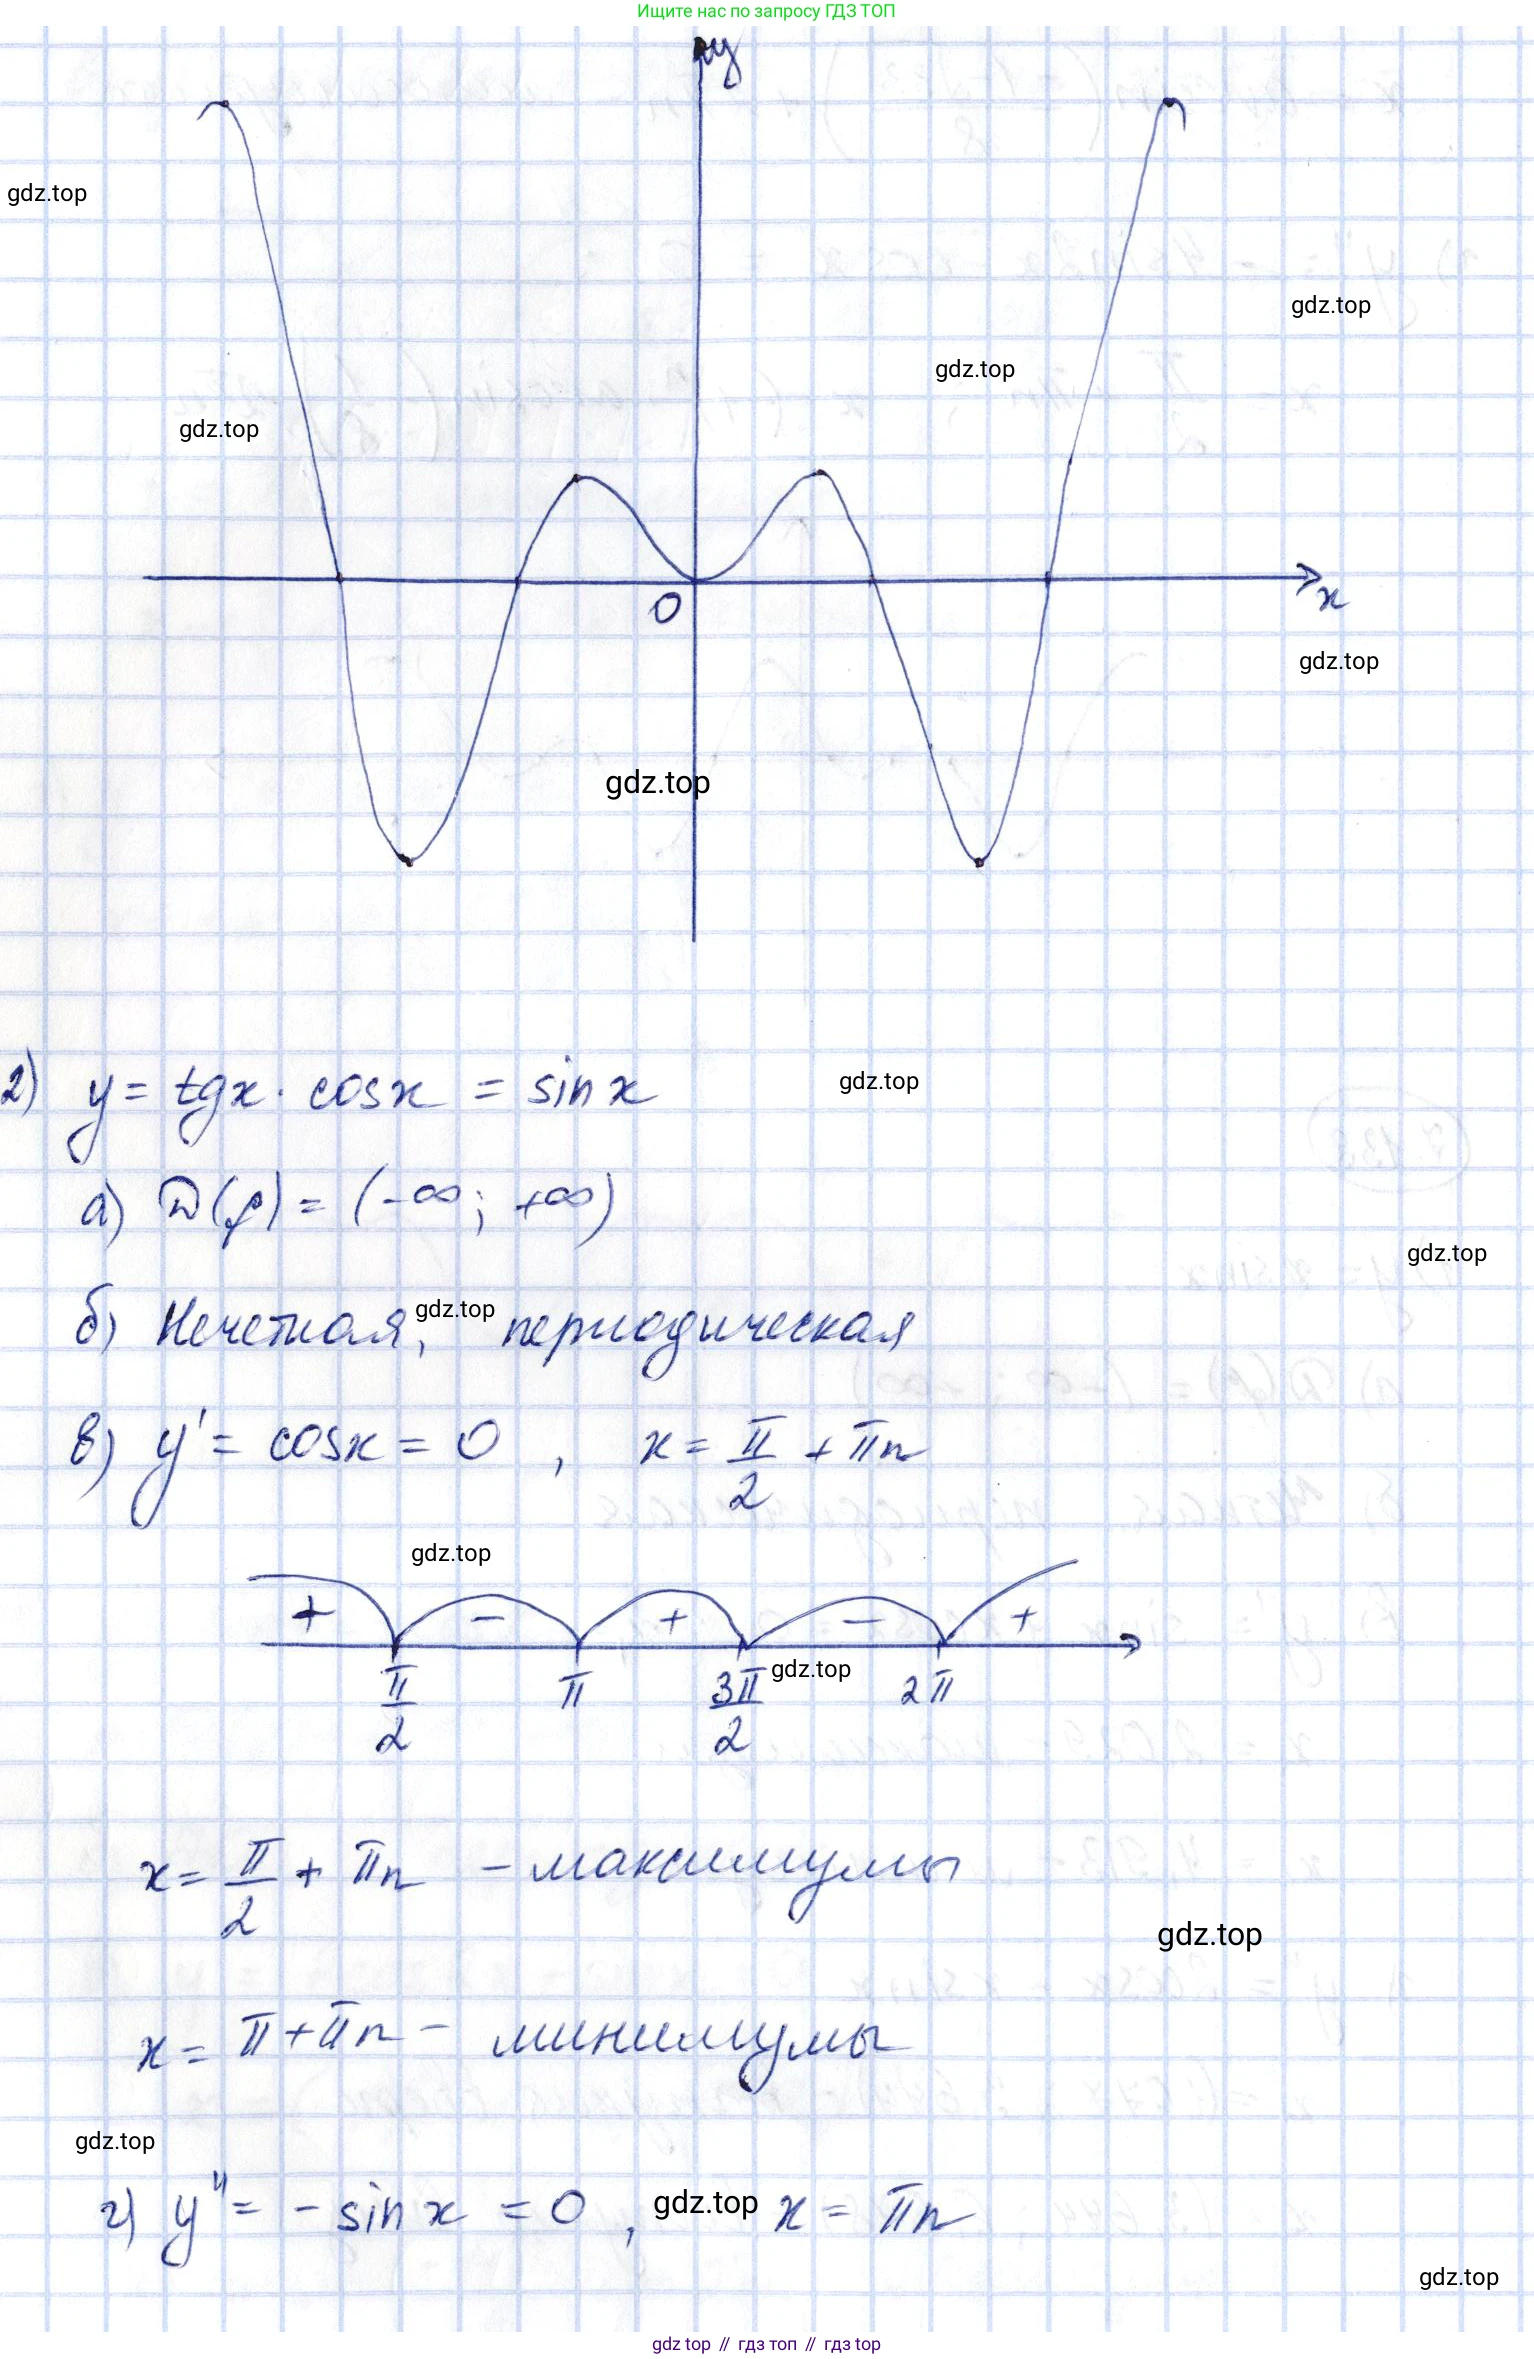 Ищите нас по запросу ГДЗ ТОП
y
gdz.top
gdz.top
gdz.top
gdz.top
0
x
gdz.top
gdz.top
2) y = tgx · cosx = sin x
gdz.top
а) D(f) = (-∞; +∞)
gdz.top
б) Нечетная, периодическая
gdz.top
в) y' = cosx = 0 , x = π/2 + πn
gdz.top
+ − + − +
π/2 π 3π/2 2π
gdz.top
x = π/2 + πn - максимумы
gdz.top
x = π + πn - минимумы
gdz.top
г) y" = - sin x = 0 , x = πn
gdz.top
gdz.top
gdz.top // гдз топ // гдз top